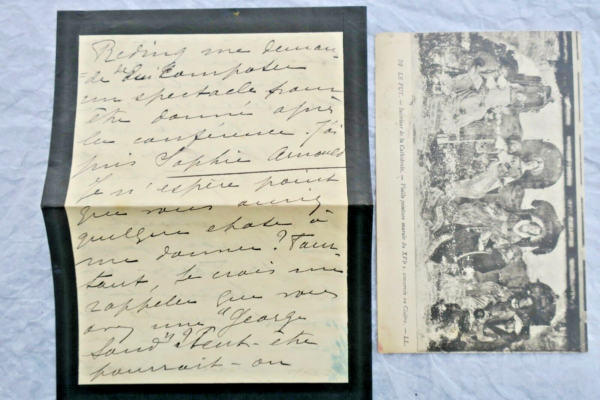 Reding me deman-
=de de lui composer
un spectacle pour
être donné après
la conférence. J'ai
pris Sophie Arnould
Je n'espère point
que vous auriez
quelque chose à
me donner? Pour-
tant, Je crois me
rappeler que vous
avez une "George
Sand"? Peut-être
pourrait-on
LE PUY. — Intérieur de la Cathédrale. — Vieille peinture murale du XVe s. — LL.